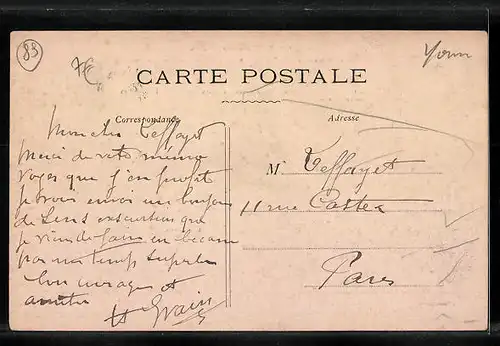 89
Yonne
CARTE POSTALE
Correspondance
Adresse
Mon cher Teffayet
Merci de votre mémo
voyez que j'en profite
je vous envoi un bonjour
de Sens excursion que
je viens de faire en bécane
par un temps superbe
bon courage et
amitiés
M Teffayet
11 rue Castex
Paris